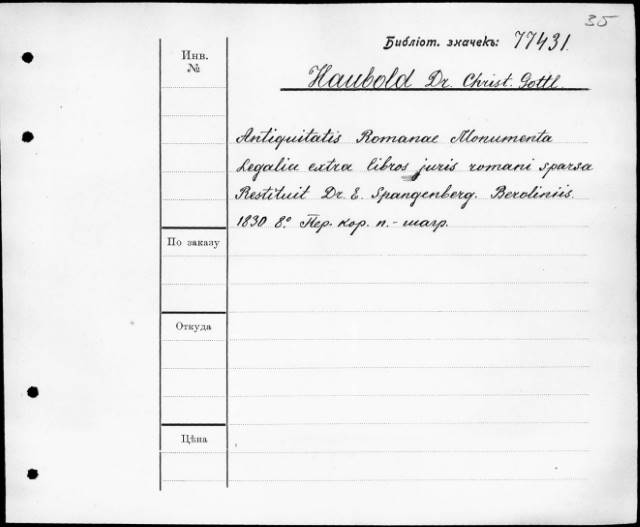 35
Библіот. значекъ: 77431.
Инв.
№
Haubold Dr. Christ. Gottl.
Antiquitatis Romanae Monumenta
Legalia extra libros juris romani sparsa
Restituit Dr. E. Spangenberg. Berolinis.
1830 8.° Пер. кор. п.-шагр.
По заказу
Откуда
Цѣна